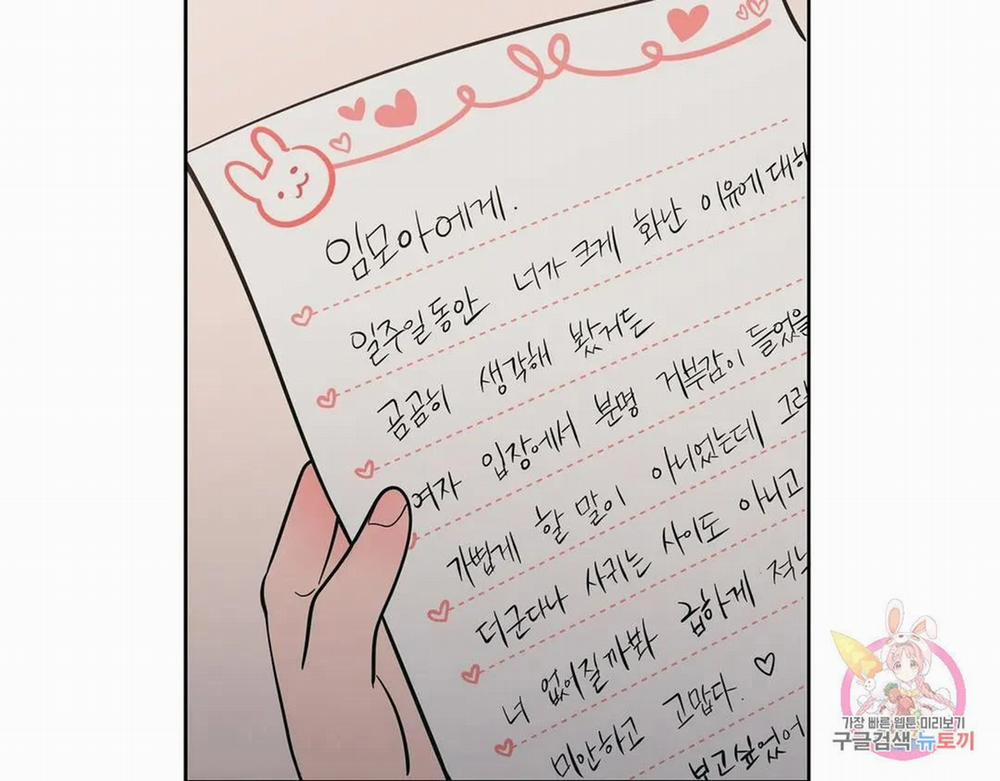 임모아에게.
일주일동안 너가 크게 화난 이유에 대해
곰곰히 생각해 봤거든
여자 입장에서 분명 거부감이 들었을
가볍게 할 말이 아니었는데 그
더군다나 사귀는 사이도 아니고
너 없어질까봐 급하게 적는
미안하고 고맙다. ♡
보고싶었어
가장 빠른 웹툰 미리보기
구글검색 뉴토끼